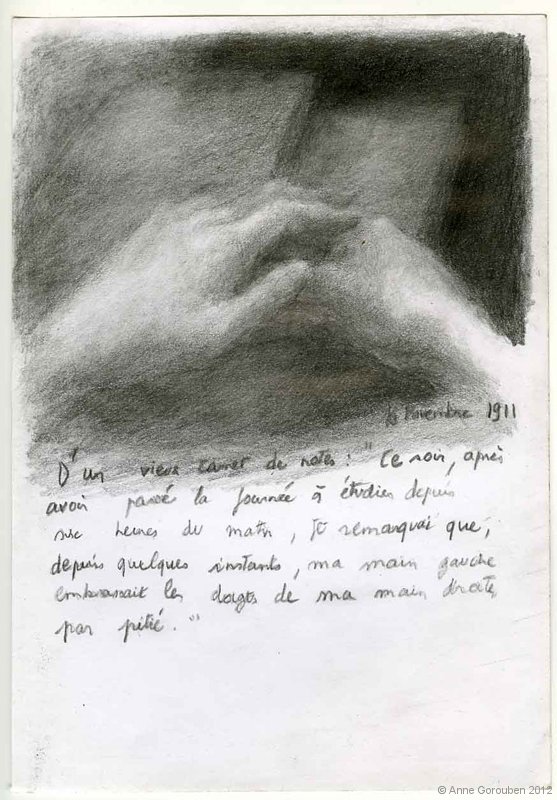 novembre 1911
D'un vieux carnet de notes : "Ce soir, après
avoir passé la journée à étudier depuis
six heures du matin, je remarquai que,
depuis quelques instants, ma main gauche
embrassait les doigts de ma main droite
par pitié."
© Anne Gorouben 2012